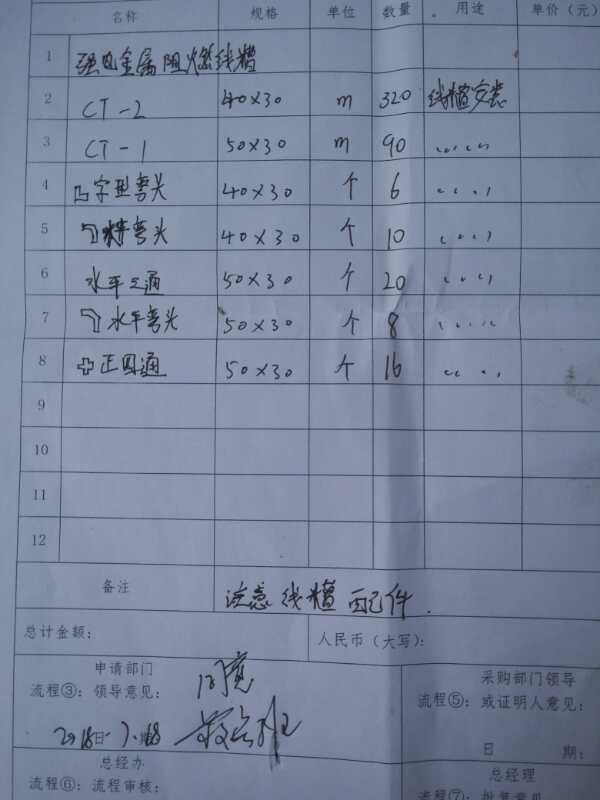 名称 规格 单位 数量 用途 单价（元）
1 强电金属阻燃线槽
2 CT-2 40×30 m 320 线槽安装
3 CT-1 50×30 m 90 〃〃
4 凸字型弯头 40×30 个 6 〃〃
5 弯头 40×30 个 10 〃〃
6 水平三通 50×30 个 20 〃〃
7 水平弯头 50×30 个 8 〃〃
8 正四通 50×30 个 16 〃〃
9
10
11
12
备注 注意线槽配件.
总计金额： 人民币（大写）：
申请部门 采购部门领导
流程③：领导意见： 同意 流程⑤：或证明人意见：
日 期：
总经办 总经理
流程⑥：流程审核： 流程⑦：批复意见